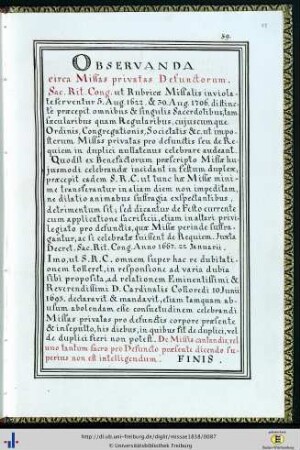 89.
OBSERVANDA
circa Missas privatas Defunctorum.
Sac. Rit. Cong. ut Rubricæ Missalis inviola-
te serventur 5. Aug. 1622. & 30. Aug. 1706. distinc-
te præcepit omnibus & singulis Sacerdotibus, tam
sæcularibus quam Regularibus, cujuscumque
Ordinis, Congregationis, Societatis &c. ut impo-
sterum Missas privatas pro defunctis seu de Requi-
em in duplici nullatenus celebrare audeant.
Quodsi ex Benefactorum præscripto Missæ hu-
jusmodi celebrandæ incidant in festum duplex,
præcepit eadem S. R. C. ut tunc hæ Missæ mini-
me transferantur in aliam diem non impeditam,
ne dilatio animabus suffragia exspectantibus,
detrimentum sit; sed dicantur de Festo currente
cum applicatione sacrificii, etiam in altari privi-
legiato pro defunctis, quæ Missæ perinde suffra-
gantur, ac si celebratæ fuissent de Requiem. Juxta
Decret. Sac. Rit. Cong. Anno 1667. 22 Januarii,
Imo, ut S. R. C. omnem super hac re dubitati-
onem tolleret, in responsione ad varia dubia
sibi proposita, ad relationem Eminentissimi &
Reverendissimi D. Cardinalis Colloredi 10. Junii
1693. declaravit & mandavit, etiam tamquam ab-
usum abolendam esse consuetudinem celebrandi
Missas privatas pro defunctis corpore præsente
& insepulto, his diebus, in quibus fit de duplici, vel
de duplici fieri non potest. De Missa cantanda, vel
uno tantum sacro pro Defuncto præsente dicendo su-
perius non est intelligendum. FINIS.
http://dl.ub.uni-freiburg.de/diglit/missat1858/0087
© Universitätsbibliothek Freiburg